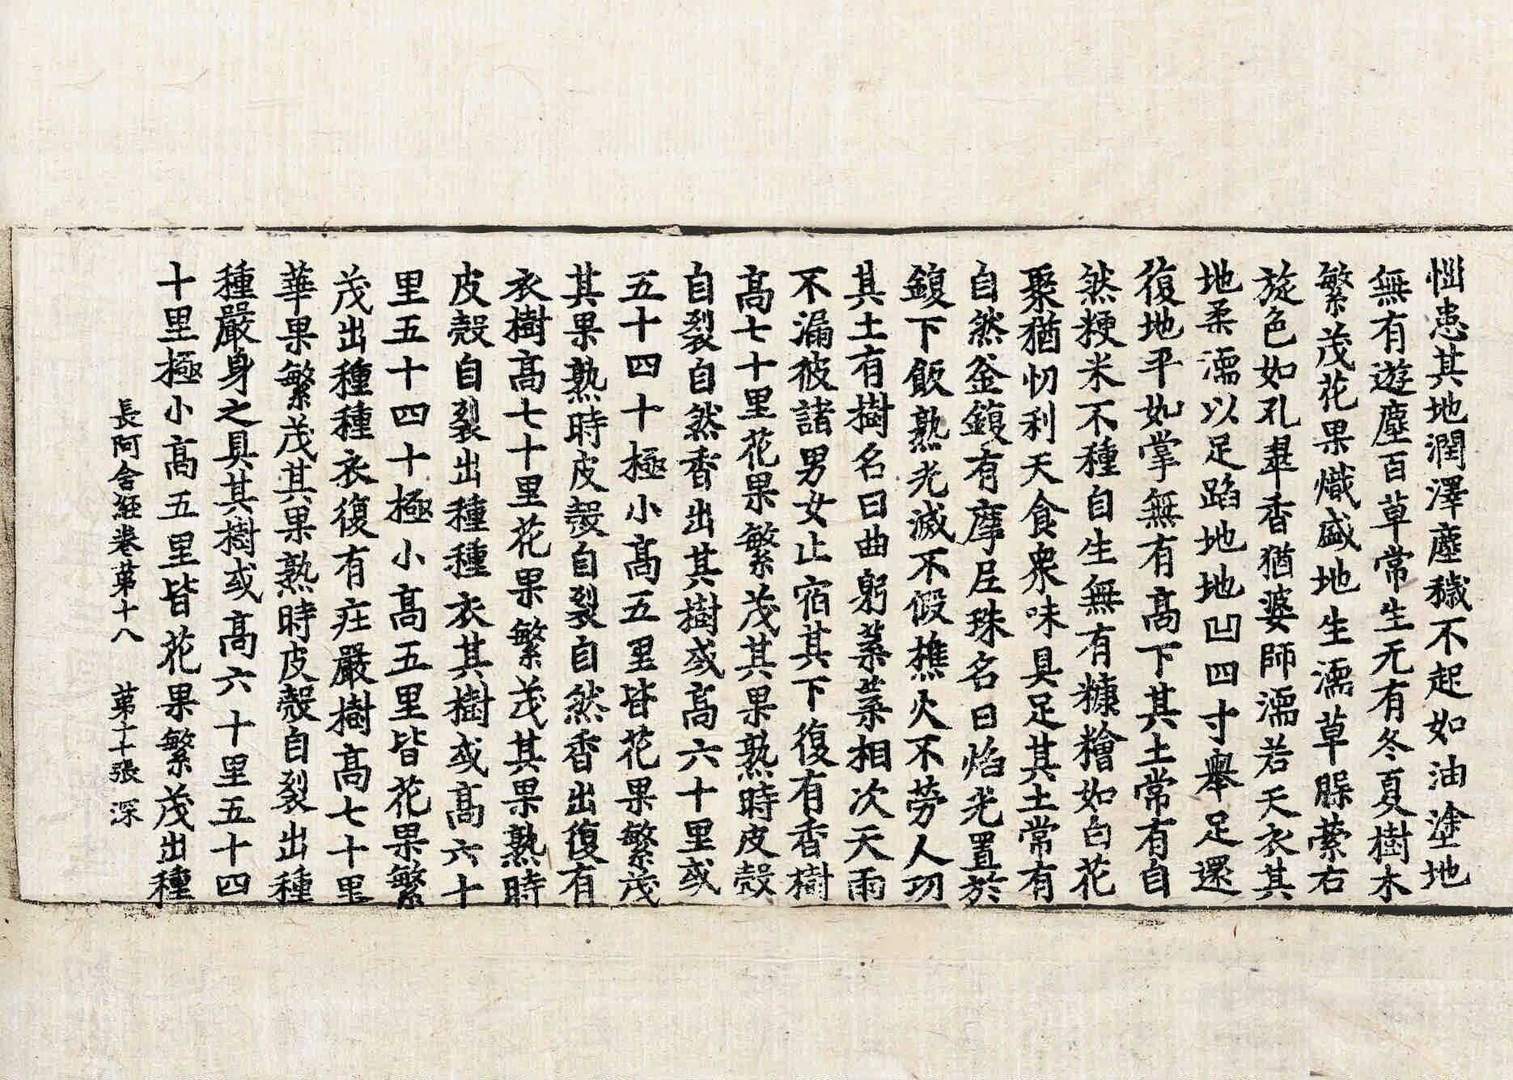 惱患其地潤澤塵穢不起如油塗地
無有遊塵百草常生无有冬夏樹木
繁茂花果熾盛地生濡草縈右
旋色如孔翠香猶婆師濡若天衣其
地柔濡以足蹈地地凹四寸舉足還
復地平如掌無有高下其土常有自
然粳米不種自生無有糠糩如白花
聚猶忉利天食衆味具足其土常有
自然釜鍑有摩尼珠名曰焰光置於
鍑下飯熟光滅不假樵火不勞人功
其土有樹名曰曲躬葉葉相次天雨
不漏彼諸男女止宿其下復有香樹
高七十里花果繁茂其果熟時皮殼
自裂自然香出其樹或高六十里或
五十四十極小高五里皆花果繁茂
其果熟時皮殼自裂自然香出復有
衣樹高七十里花果繁茂其果熟時
皮殼自裂出種種衣其樹或高六十
里五十四十極小高五里皆花果繁
茂出種種衣復有庄嚴樹高七十里
華果繁茂其果熟時皮殼自裂出種
種嚴身之具其樹或高六十里五十四
十里極小高五里皆花果繁茂出種
長阿含經卷第十八 第二十張 深